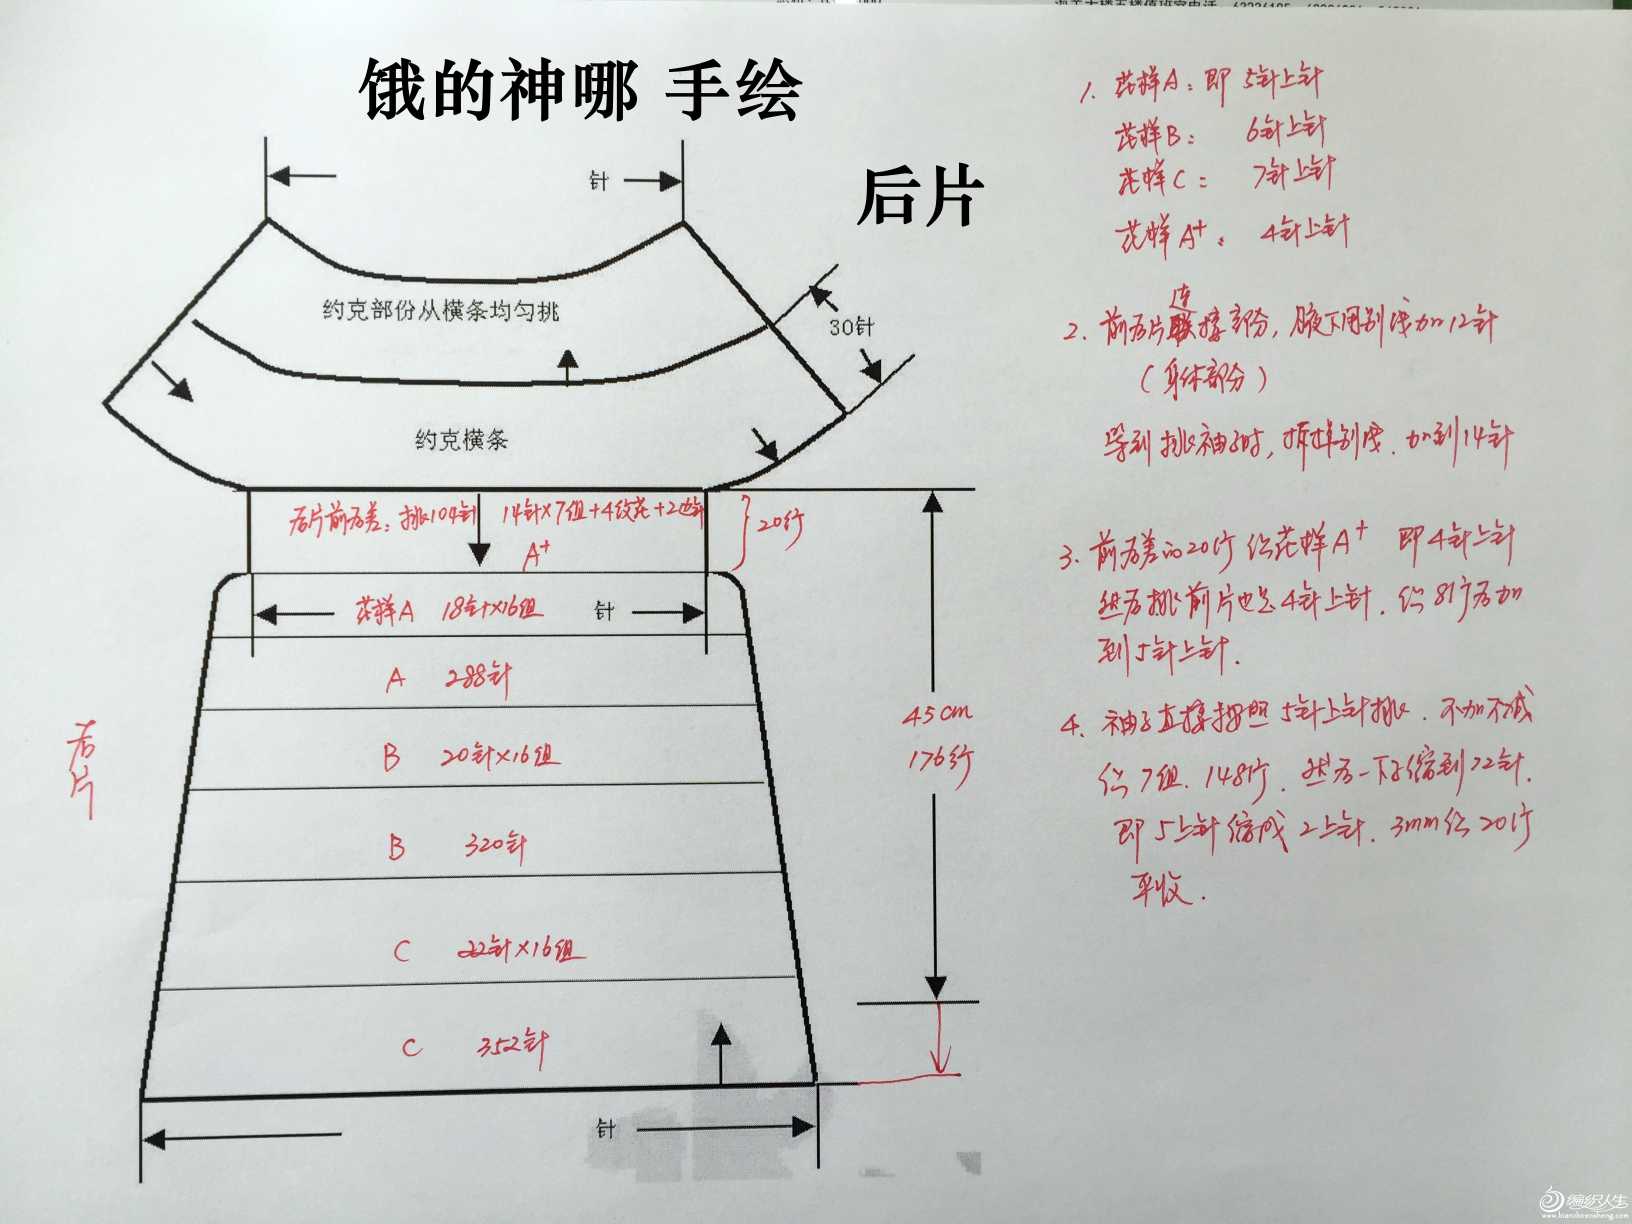 饿的神哪 手绘
后片
针
约克部份从横条均匀挑
30针
约克横条
后片前后差：挑104针 14针×7组+4绞花+2边针
A+
20行
花样A 18针×16组 针
A 288针
B 20针×16组
B 320针
C 22针×16组
C 352针
针
后片
45cm
176行
1. 花样A：即 5针上针
花样B： 6针上针
花样C： 7针上针
花样A+： 4针上针
2. 前后片连接部分，腋下用别线加12针
（身体部分）
等到挑袖子时，拆掉别线．加到14针
3. 前后差的20行 织花样A+ 即4针上针
然后挑前片也是4针上针．织8行后加
到5针上针．
4. 袖子直接按照 5针上针挑．不加不减
织7组．148行．然后一下子缩到72针．
即5上针缩成2上针．3mm织20行
平收．
编织人生
www.bianzhirensheng.com